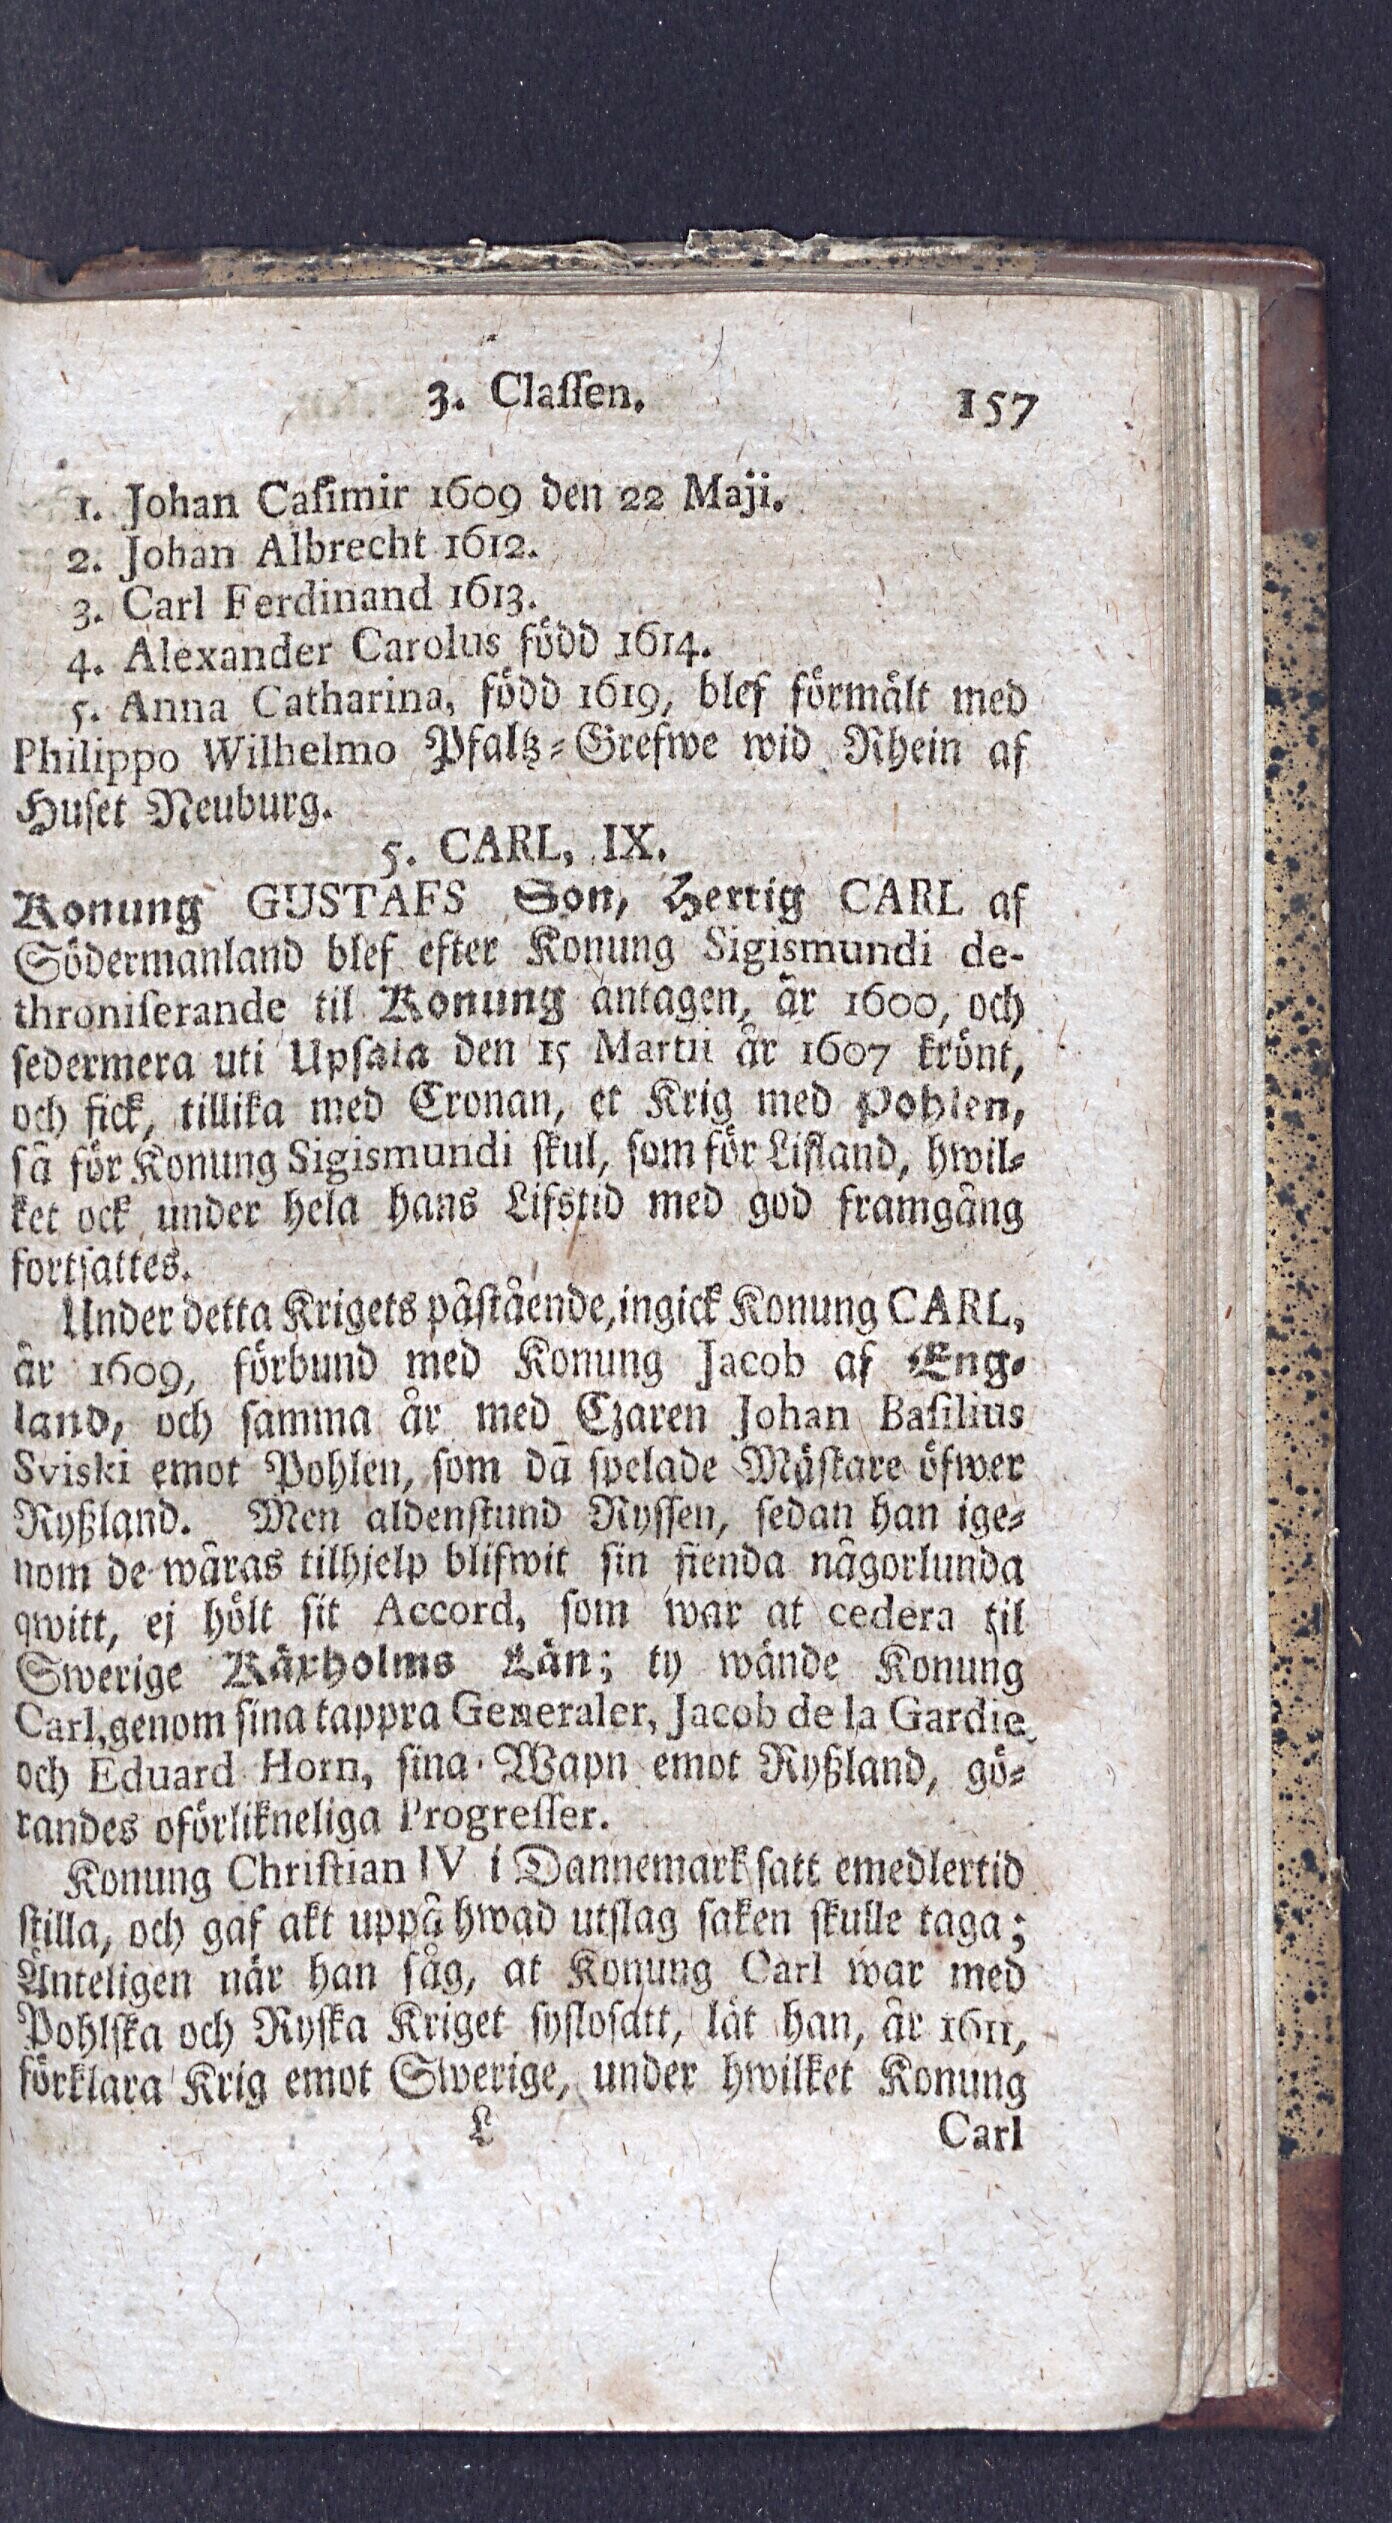 3. Classen. 157
1. Johan Casimir 1609 den 22 Maji.
2. Johan Albrecht 1612.
3. Carl Ferdinand 1613.
4. Alexander Carolus född 1614.
5. Anna Catharina, född 1619, blef förmält med
Philippo Wilhelmo Pfaltz-Grefwe wid Rhein af
Huset Neuburg.
5. CARL, IX.
Konung GUSTAFS Son, Hertig CARL af
Södermanland blef efter Konung Sigismundi de-
throniserande til Konung antagen, år 1600, och
sedermera uti Upsala den 15 Martii år 1607 krönt,
och fick, tillika med Cronan, et Krig med Pohlen,
så för Konung Sigismundi skul, som för Lifland, hwil-
ket ock under hela hans Lifstid med god framgång
fortsattes.
Under detta Krigets påstående, ingick Konung CARL,
år 1609, förbund med Konung Jacob af Eng-
land, och samma år med Czaren Johan Basilius
Sviski emot Pohlen, som då spelade Mästare öfwer
Ryßland. Men aldenstund Ryssen, sedan han ige-
nom de wåras tilhjelp blifwit sin fienda någorlunda
qwitt, ej hölt sit Accord, som war at cedera til
Swerige Käxholms Län; ty wände Konung
Carl, genom sina tappra Generaler, Jacob de la Gardie
och Eduard Horn, sina Wapn emot Ryßland, gö-
randes oförlikneliga Progresser.
Konung Christian IV i Dannemark satt emedlertid
stilla, och gaf akt uppå hwad utslag saken skulle taga;
Änteligen när han såg, at Konung Carl war med
Pohlska och Ryska Kriget syslosatt, låt han, år 1611,
förklara Krig emot Swerige, under hwilket Konung
L Carl